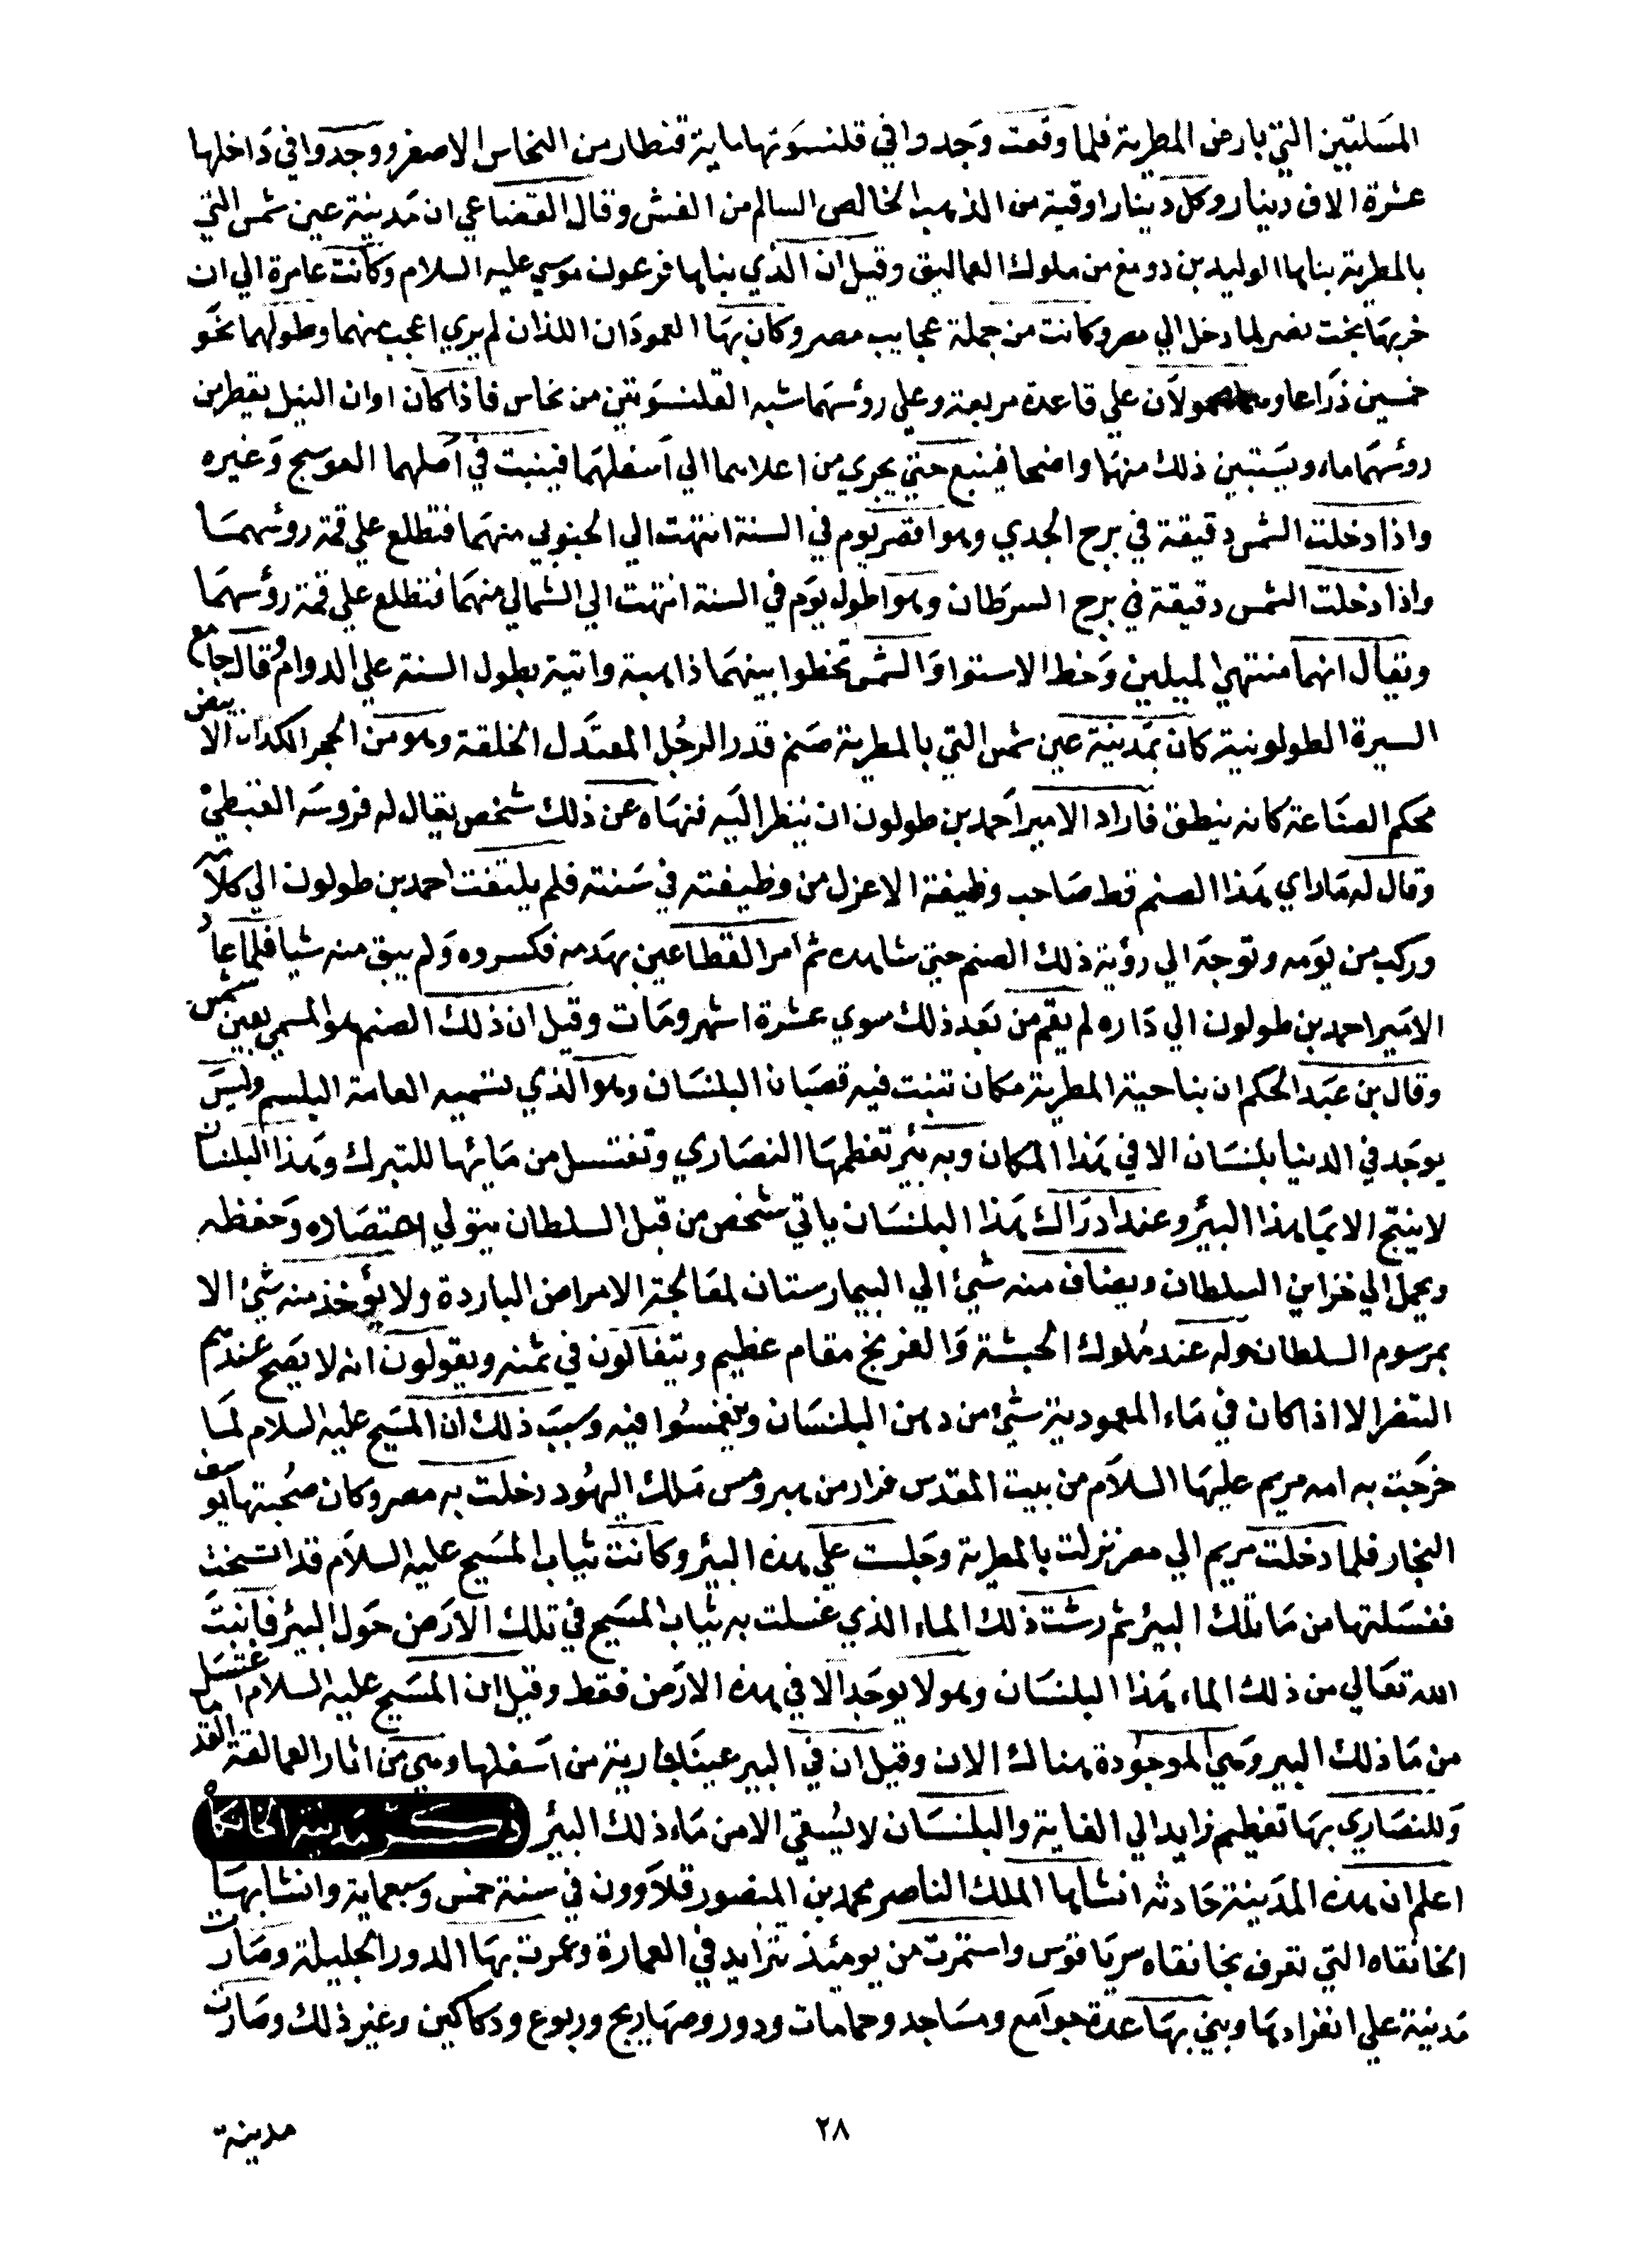 المسلتين التي بارض المطرية فلما وقعت وجدوا في قلنسوتها ماية قنطار من النحاس الاصفر ووجدوا في داخلها
عشرة الاف دينار وكل دينار اوقية من الذهب الخالص السالم من الغش وقال القضاعي ان مدينة عين شمس التي
بالمطرية بناها الوليد بن دومغ من ملوك العماليق وقيل ان الذي بناها فرعون موسي عليه السلام وكانت عامرة الي ان
خربها بخت نصر لما دخل الي مصر وكانت من جملة عجايب مصر وكان بها العمودان اللذان لم يري اعجب منهما وطولهما نحو
خمسين ذراعا وهما محمولان علي قاعدة مربعة وعلي رؤسهما شبه القلنسوتين من نحاس فاذا كان اوان النيل يقطر من
روسهما ماء ويستبين ذلك منهما واضحا فينبع حتي يجري من اعلاهما الي اسفلهما فينبت في اصلهما العوسج وغيره
واذا دخلت الشمس دقيقة في برج الجدي وهو اقصر يوم في السنة انتهت الي الجنوبي منهما فتطلع علي قمة روسهما
واذا دخلت الشمس دقيقة في برج السرطان وهو اطول يوم في السنة انتهت الي الشمالي منهما فتطلع علي قمة رؤسهما
ويقال انهما منتهي الميلين وخط الاستوا والشمس تخطوا بينهما ذاهبة واتية بطول السنة علي الدوام وقال جامع
السيرة الطولونية كان بمدينة عين شمس التي بالمطرية صنم قدر الرجل المعتدل الخلقة وهو من الحجر الكدان الابيض
محكم الصناعة كانه ينطق فاراد الامير احمد بن طولون ان ينظر اليه فنهاه عن ذلك شخص يقال له فروسه القبطي
وقال له ما راي هذا الصنم قط صاحب وظيفة الا عزل من وظيفته في سنته فلم يلتفت احمد بن طولون الي كلامه
وركب من يومه وتوجه الي رؤية ذلك الصنم حتي شاهده ثم امر القطاعين بهدمه فكسروه ولم يبق منه شيا فلما عاد
الامير احمد بن طولون الي داره لم يقم من بعد ذلك سوي عشرة اشهر ومات وقيل ان ذلك الصنم هو المسمي بعين شمس
وقال بن عبد الحكم ان بناحية المطرية مكان تنبت فيه قصبان البلنسان وهو الذي تسميه العامة البلسم وليس
يوجد في الدنيا بلنسان الا في هذا المكان وبه بئر تعظمها النصاري وتغتسل من مائها للتبرك وهذا البلنسان
لا ينتج الا بما هذا البئر وعند ادراك هذا البلنسان ياتي شخص من قبل السلطان يتولي اعتصاره وحفظه
ويحمل الي خزاين السلطان ويضاف منه شيئ الي البيمارستان لمعالجة الامراض الباردة ولا يؤخذ منه شئ الا
بمرسوم السلطان وله عند ملوك الحبشة والفرنج مقام عظيم ويتغالون في ثمنه ويقولون انه لا يصح عندهم
التنصر الا اذا كان في ماء المعمودية شئ من دهن البلنسان وينغمسوا فيه وسبب ذلك ان المسيح عليه السلام لما
خرجت به امه مريم عليها السلام من بيت المقدس فرار من هيرومس ملك اليهود دخلت به مصر وكان صحبتها يوسف
النجار فلما دخلت مريم الي مصر نزلت بالمطرية وجلست علي هذه البئر وكانت ثياب المسيح عليه السلام قد اتسخت
فغسلتها من ما تلك البيئر ثم رشت ذلك الماء الذي غسلت به ثياب المسيح في تلك الارض حول البيئر فانبت
الله تعالي من ذلك الماء هذا البلنسان وهو لا يوجد الا في هذه الارض فقط وقيل ان المسيح عليه السلام اغتسل
من ما ذلك البير وهي الموجودة هناك الان وقيل ان في البير عينا جارية من اسفلها وهي من اثار العمالقة القدما
وللنصاري بها تعظيم زايد الي الغاية والبلنسان لا يسقي الا من ماء ذلك البئر ذكر مدينة الخانكاه
اعلم ان هذه المدينة حادثه انشاها الملك الناصر محمد بن المنصور قلاوون في سنة خمس وسبعماية وانشا بها
الخانقاه التي تعرف بخانقاه سرياقوس واستمرت من يومئذ تتزايد في العمارة وعمرت بها الدور الجليلة وصارت
مدينة علي انفرادها وبني بها عدة جوامع ومساجد وحمامات ودور وصهاريج وربوع ودكاكين وغير ذلك وصارت
٢٨
مدينة